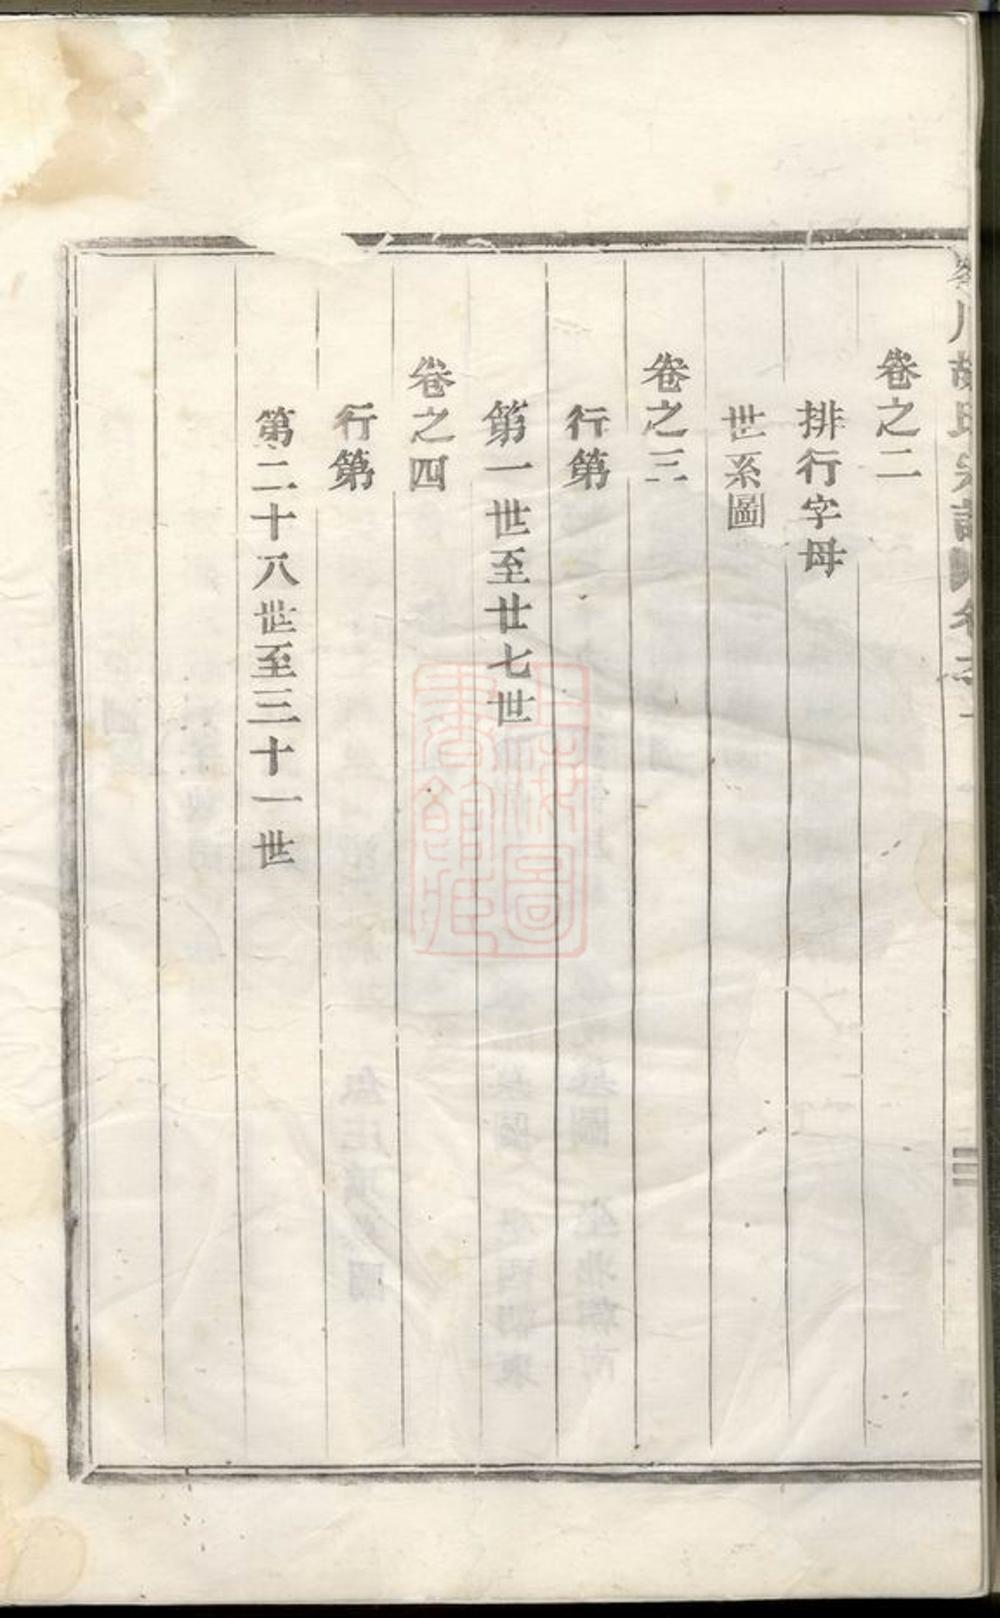 卷之二
排行字母
世系圖
卷之三
行第
第一世至廿七世
卷之四
行第
第二十八世至三十一世
上海圖書館藏